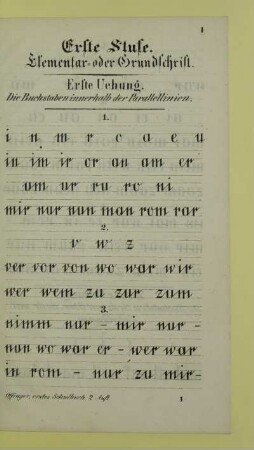 1
Erste Stufe.
Elementar- oder Grundschrift.
Erste Uebung.
Die Buchstaben innerhalb der Parallellinien.
1.
i n m r c a e u
in im ir er an am er
um ur ru rc ni
mir nur nun man rom rar
2.
v w z
ver vor von wo war wir
wer wem zu zur zum
3.
nimm nur - mir nur -
nun wo war er - wer war
in rom - nur zu mir -
Offinger, erstes Schulbuch 2. Aufl.
1